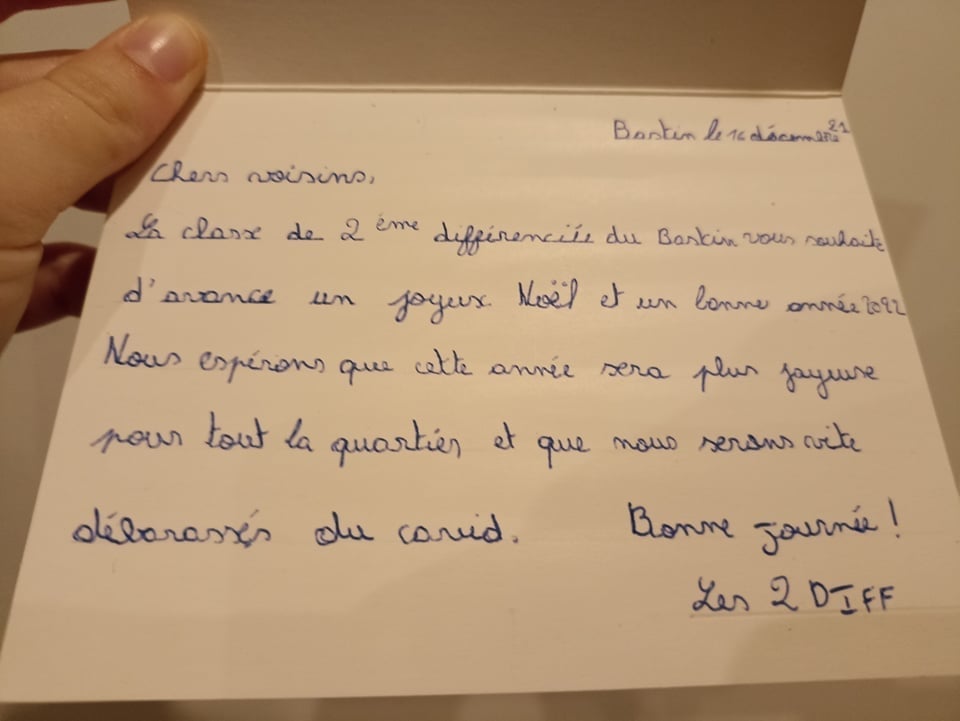 Bastin le 16 décembre 21
Chers voisins,
La classe de 2 ème différenciée du Bastin vous souhaite
d'avance un joyeux Noël et un bonne année 2022
Nous espérons que cette année sera plus joyeuse
pour tout la quartiér et que nous serons vite
débarassés du covid. Bonne journée !
Les 2 DIFF